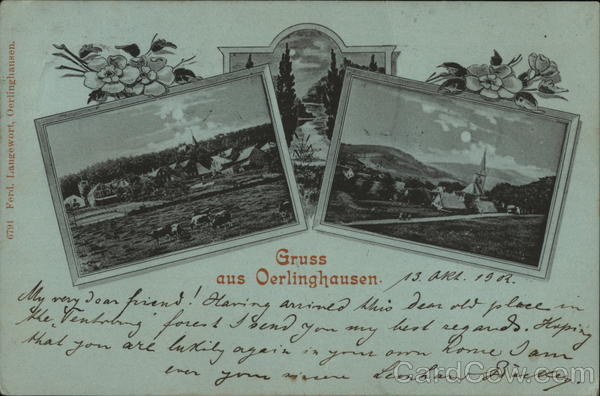 6791 Ferd. Langewort, Oerlinghausen.
Gruss
aus Oerlinghausen.
13. Okt. 1902.
My very dear friend! Having arrived this dear old place in
the "Teutoburg" forest I send you my best regards. Hoping
that you are lukily again in your own home I am
ever your sincere
CardCow.com